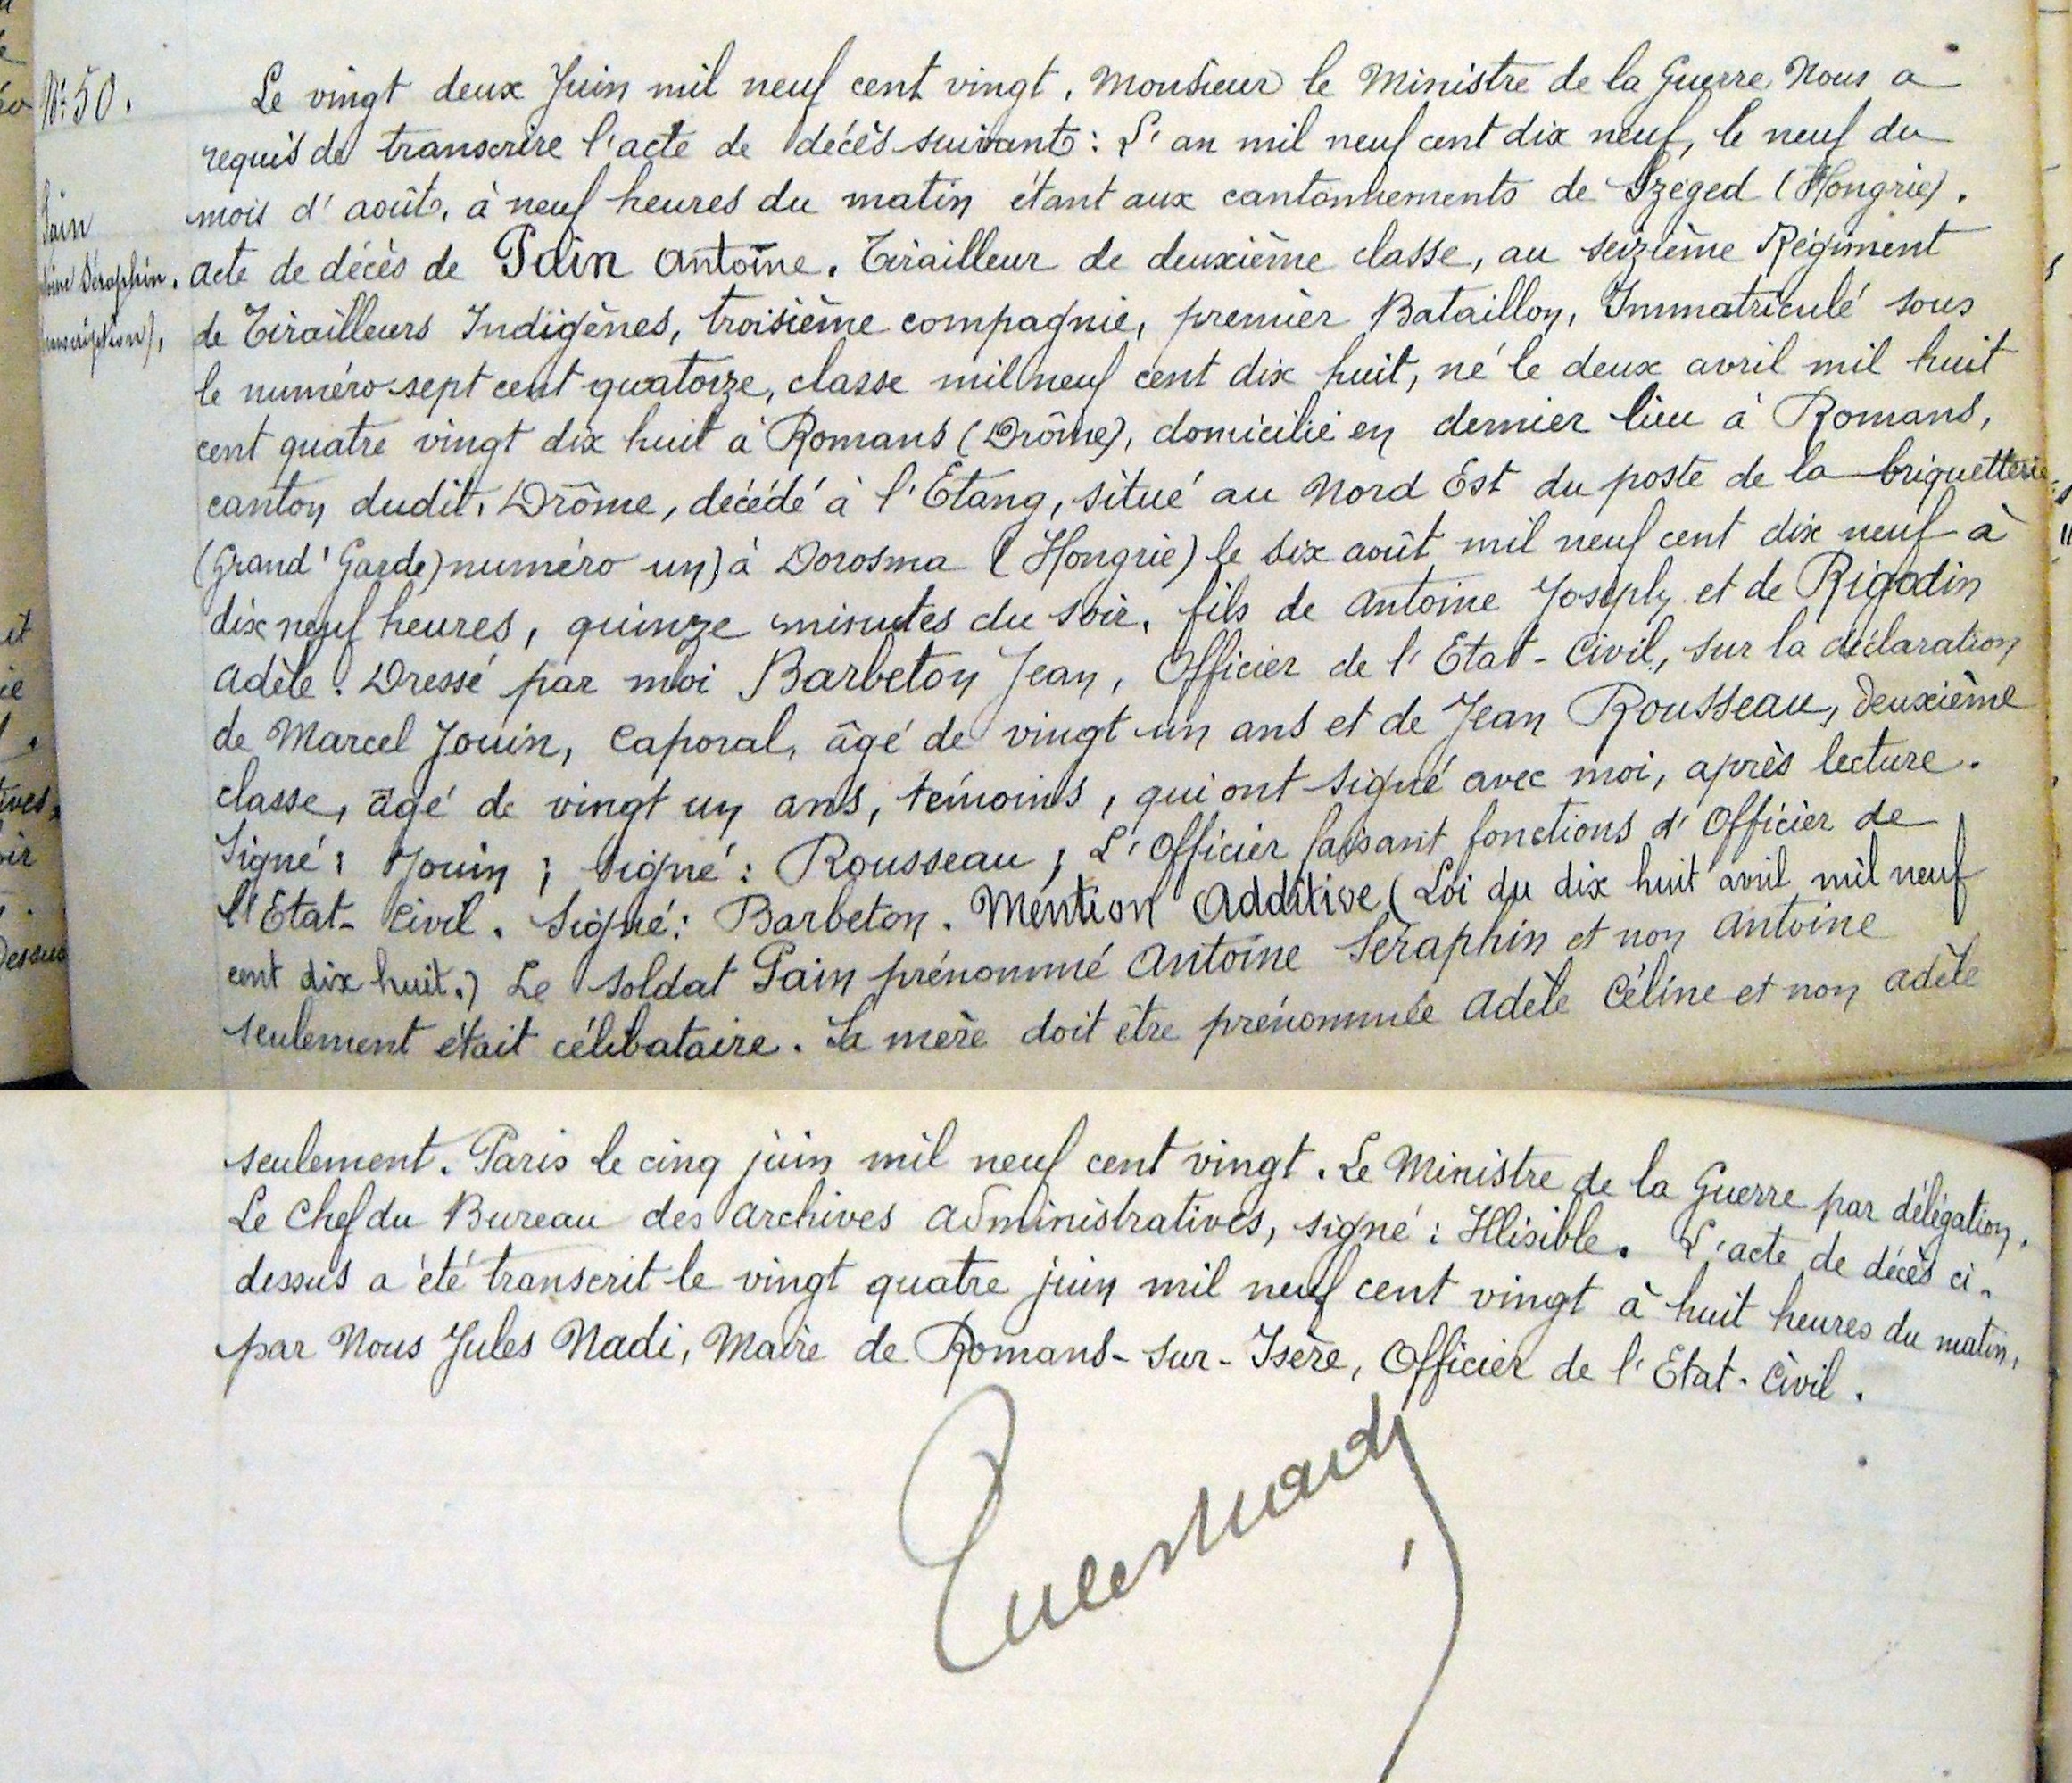 N° 50.
Pain
Séraphin.
Le vingt deux Juin mil neuf cent vingt, Monsieur le Ministre de la Guerre, Nous a
requis de transcrire l'acte de décès suivant : L'an mil neuf cent dix neuf, le neuf du
mois d'août, à neuf heures du matin étant aux cantonnements de Szeged (Hongrie).
acte de décès de Pain Antoine. Tirailleur de deuxième classe, au seizième Régiment
de Tirailleurs Indigènes, troisième compagnie, premier Bataillon, Immatriculé sous
le numéro sept cent quatorze, classe mil neuf cent dix huit, né le deux avril mil huit
cent quatre vingt dix huit à Romans (Drôme), domicilié en dernier lieu à Romans,
canton dudit, Drôme, décédé à l'Etang, situé au Nord Est du poste de la briquetterie
(Grand'Garde) numéro un) à Dorosma (Hongrie) le six août mil neuf cent dix neuf à
dix neuf heures, quinze minutes du soir, fils de Antoine Joseph et de Rigodin
Adèle. Dressé par moi Barbeton Jean, Officier de l'Etat-Civil, sur la déclaration
de Marcel Jouin, Caporal, âgé de vingt un ans et de Jean Rousseau, deuxième
classe, âgé de vingt un ans, témoins, qui ont signé avec moi, après lecture.
Signé : Jouin ; Signé : Rousseau ; L'Officier faisant fonctions d'Officier de
l'Etat-Civil. Signé : Barbeton. Mention Additive (Loi du dix huit avril mil neuf
cent dix huit.) Le soldat Pain prénommé Antoine Séraphin et non Antoine
seulement était célibataire. Sa mère doit être prénommée Adèle Céline et non Adèle
seulement. Paris le cinq juin mil neuf cent vingt. Le Ministre de la Guerre par délégation,
Le Chef du Bureau des Archives Administratives, signé : Illisible. L'acte de décès ci-
dessus a été transcrit le vingt quatre juin mil neuf cent vingt à huit heures du matin,
par Nous Jules Nadi, Maire de Romans-sur-Isère, Officier de l'Etat-Civil.
Jules Nadi